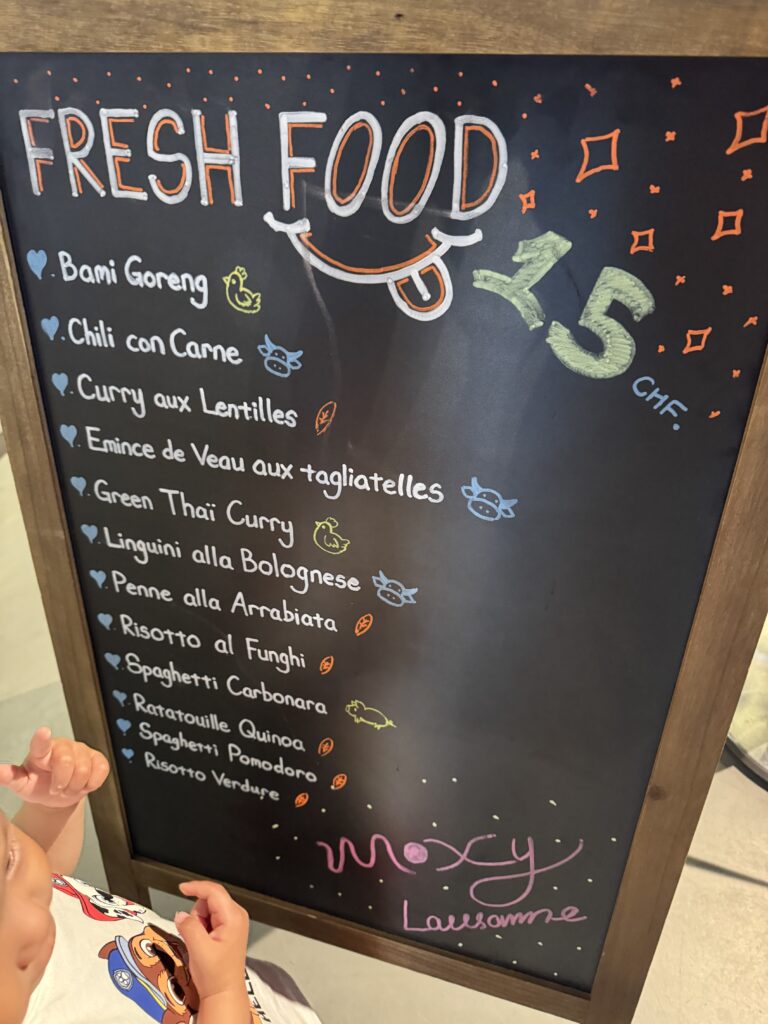 FRESH FOOD
15
CHF.
Bami Goreng
Chili con Carne
Curry aux Lentilles
Emince de Veau aux tagliatelles
Green Thaï Curry
Linguini alla Bolognese
Penne alla Arrabiata
Risotto al Funghi
Spaghetti Carbonara
Ratatouille Quinoa
Spaghetti Pomodoro
Risotto Verdure
Moxy
Lausanne